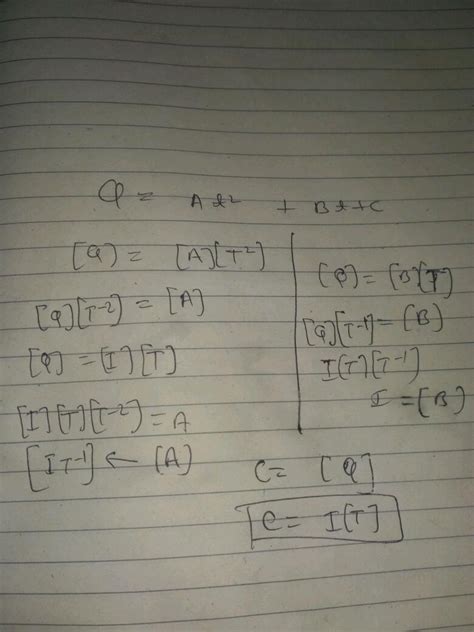 Q = At² + Bt+C
[Q] = [A][T²]
[Q][T⁻²] = [A]
[Q] = [I][T]
[I][T][T⁻²] = A
[IT⁻¹] ← [A]
[Q] = [B][T]
[Q][T⁻¹] = [B]
I[T][T⁻¹]
I = [B]
C = [Q]
C = I[T]